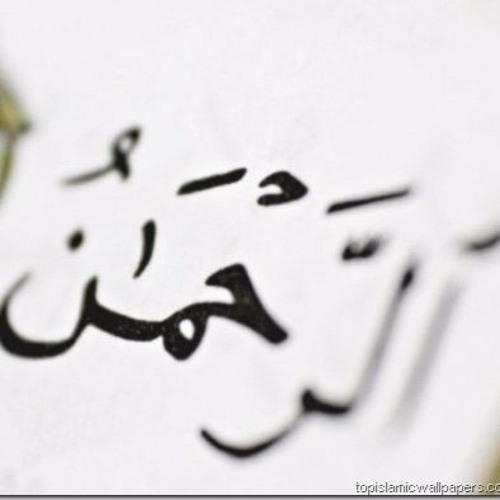 الرَّحْمَٰنُ
topislamicwallpapers.co